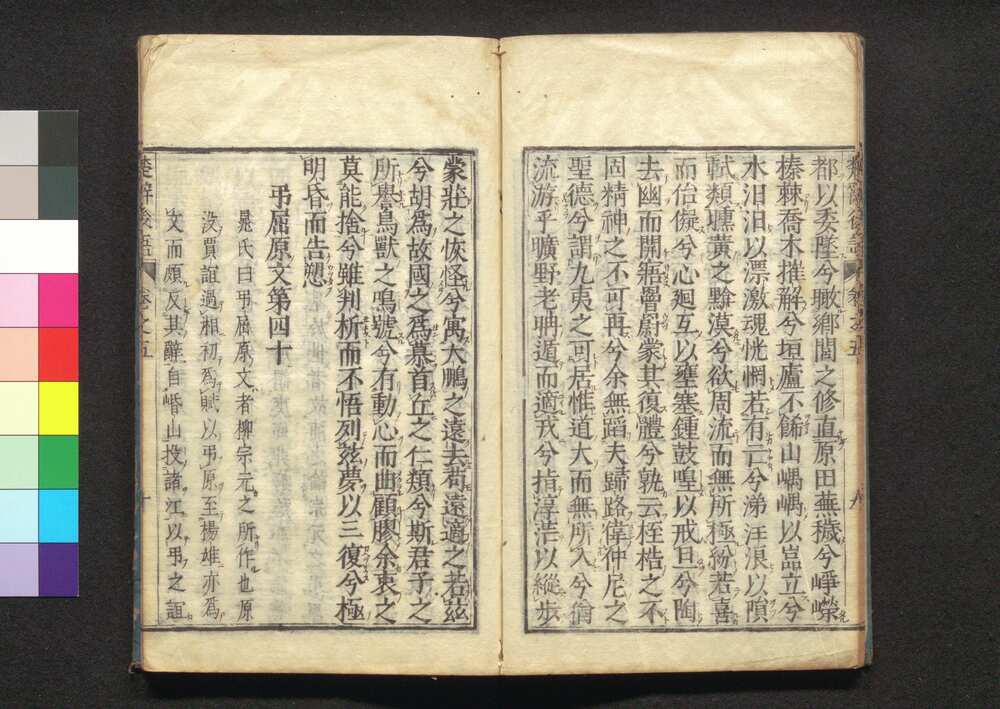 都以委墜兮瞰鄉閭之修直原田蕪穢兮崢嶸
榛棘喬木摧解兮垣廬不餙山嵎嵎以嵓立兮
水汨汨以漂激魂恍惘若有亡兮涕汪浪以隕
軾類曛黃之黭漠兮欲周流而無所極紛若喜
而佁儗兮心廻互以壅塞鍾鼓喤以戒旦兮陶
去幽而開寤罾罻蒙其復體兮孰云桎梏之不
固精神之不可再兮余無蹈夫歸路偉仲尼之
聖德兮謂九夷之可居惟道大而無所入兮猶
流游乎曠野老聃遁而適戎兮指淳茫以縱步
蒙莊之恢怪兮寓大鵬之遠去苟遠適之若茲
兮胡爲故國之爲慕首丘之仁類兮斯君子之
所譽鳥獸之鳴號兮有動心而曲顧膠余衷之
莫能捨兮雖判析而不悟列茲夢以三復兮極
明昏而告愬
弔屈原文第四十
晁氏曰弔屈原文者柳宗元之所作也原
沒賈誼過湘初爲賦以弔原至楊雄亦爲
文而頗反其辭自崏山投諸江以弔之誼
楚辭後語
卷之五
十